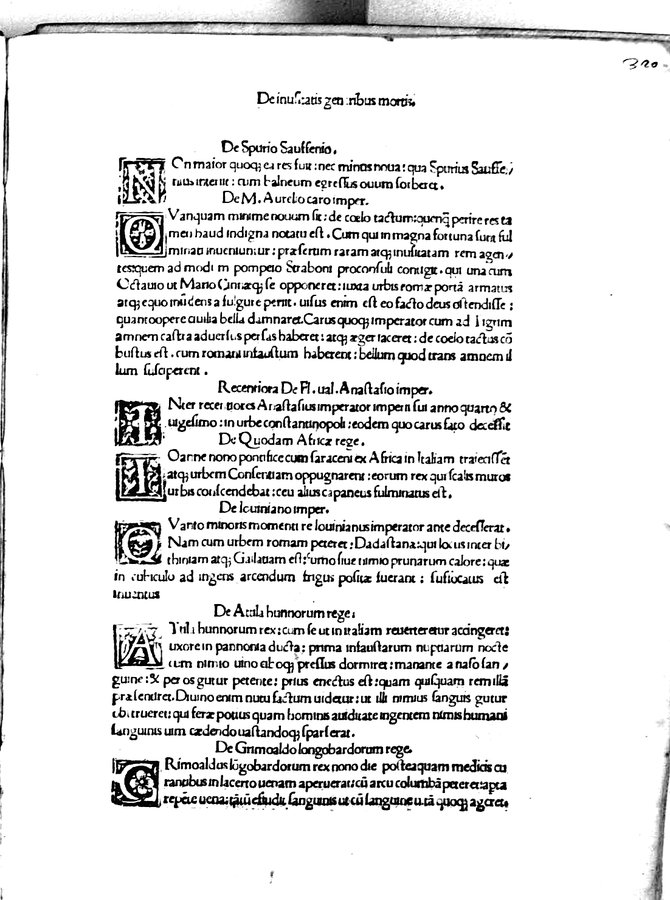 320
De inusitatis generibus mortis.
De Spurio Sauffenio.
NOn maior quoq; ea res fuit: nec minus noua: qua Spurius Sauffe,/
nius interiit: cum balneum egressus ouum sorberet.
De M. Aurelio caro imper.
QVanquam minime nouum sit: de coelo tactum: quenq; perire res ta
men haud indigna notatu est. Cum qui in magna fortuna sunt ful
minati inueniuntur: præsertim raram atq; inusitatam rem agen,
tes: quem ad modum pompeio Straboni proconsuli contigit. qui una cum
Octauio ut Mario Cinnæq; se opponeret: iuxta urbis romæ portā armatus
atq; equo insidens a fulgure periit. uisus enim est eo facto deus ostendisse:
quantoopere ciuilia bella damnaret. Carus quoq; imperator cum ad Tigrim
amnem castra aduersus persas haberet: atq; æger iaceret: de coelo tactus cō
bustus est. cum romani infaustum haberent: bellum quod trans amnem il
lum susciperent.
Recentiora De Fl. ual. Anastasio imper.
INter recentiores Anastasius imperator imperii sui anno quarto &
uigesimo: in urbe constantinopoli: eodem quo carus fato decessit
De Quodam Africæ rege.
IOanne nono pontifice cum saraceni ex Africa in Italiam traiecissēt
atq; urbem Consentiam oppugnarent: eorum rex qui scalis muros
urbis conscendebat: ceu alius capaneus fulminatus est.
De Iouiniano imper.
QVanto minoris momenti re Iouinianus imperator ante decesserat.
Nam cum urbem romam peteret: Dadastana: qui locus inter bi,
thiniam atq; Galatiam est: fumo siue nimio prunarum calore: quæ
in cubiculo ad ingens arcendum frigus positæ fuerant: suffocatus est
inuentus
De Attila hunnorum rege.
ATtila hunnorum rex: cum se ut in italiam reuerteretur accingeret:
uxore in pannonia ducta: prima infaustarum nuptiarum nocte
cum nimio uino ciboq; pressus dormiret: manante a naso san,/
guine: & per os gutur petente: prius enectus est: quam quisquam rem illā
præsentiret. Diuino enim nutu factum uidetur: ut illi nimius sanguis gutur
obstrueret: qui feræ potius quam hominis auiditate ingentem nimis humani
sanguinis uim cædendo uastandoq; sparserat.
De Grimoaldo longobardorum rege.
GRimoaldus lōgobardorum rex nono die posteaquam medicis cu
rantibus in lacerto uenam aperuerat: cū arcu columbā peteret: apta
repēte uena: tātū effudit sanguinis ut cū sanguine uitā quoq; ageret.